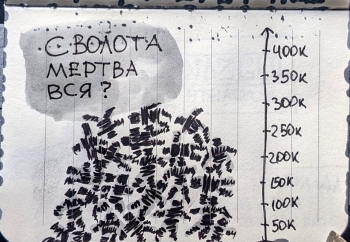 СВОЛОТА
МЕРТВА
ВСЯ?
400K
350K
300K
250K
200K
150K
100K
50K